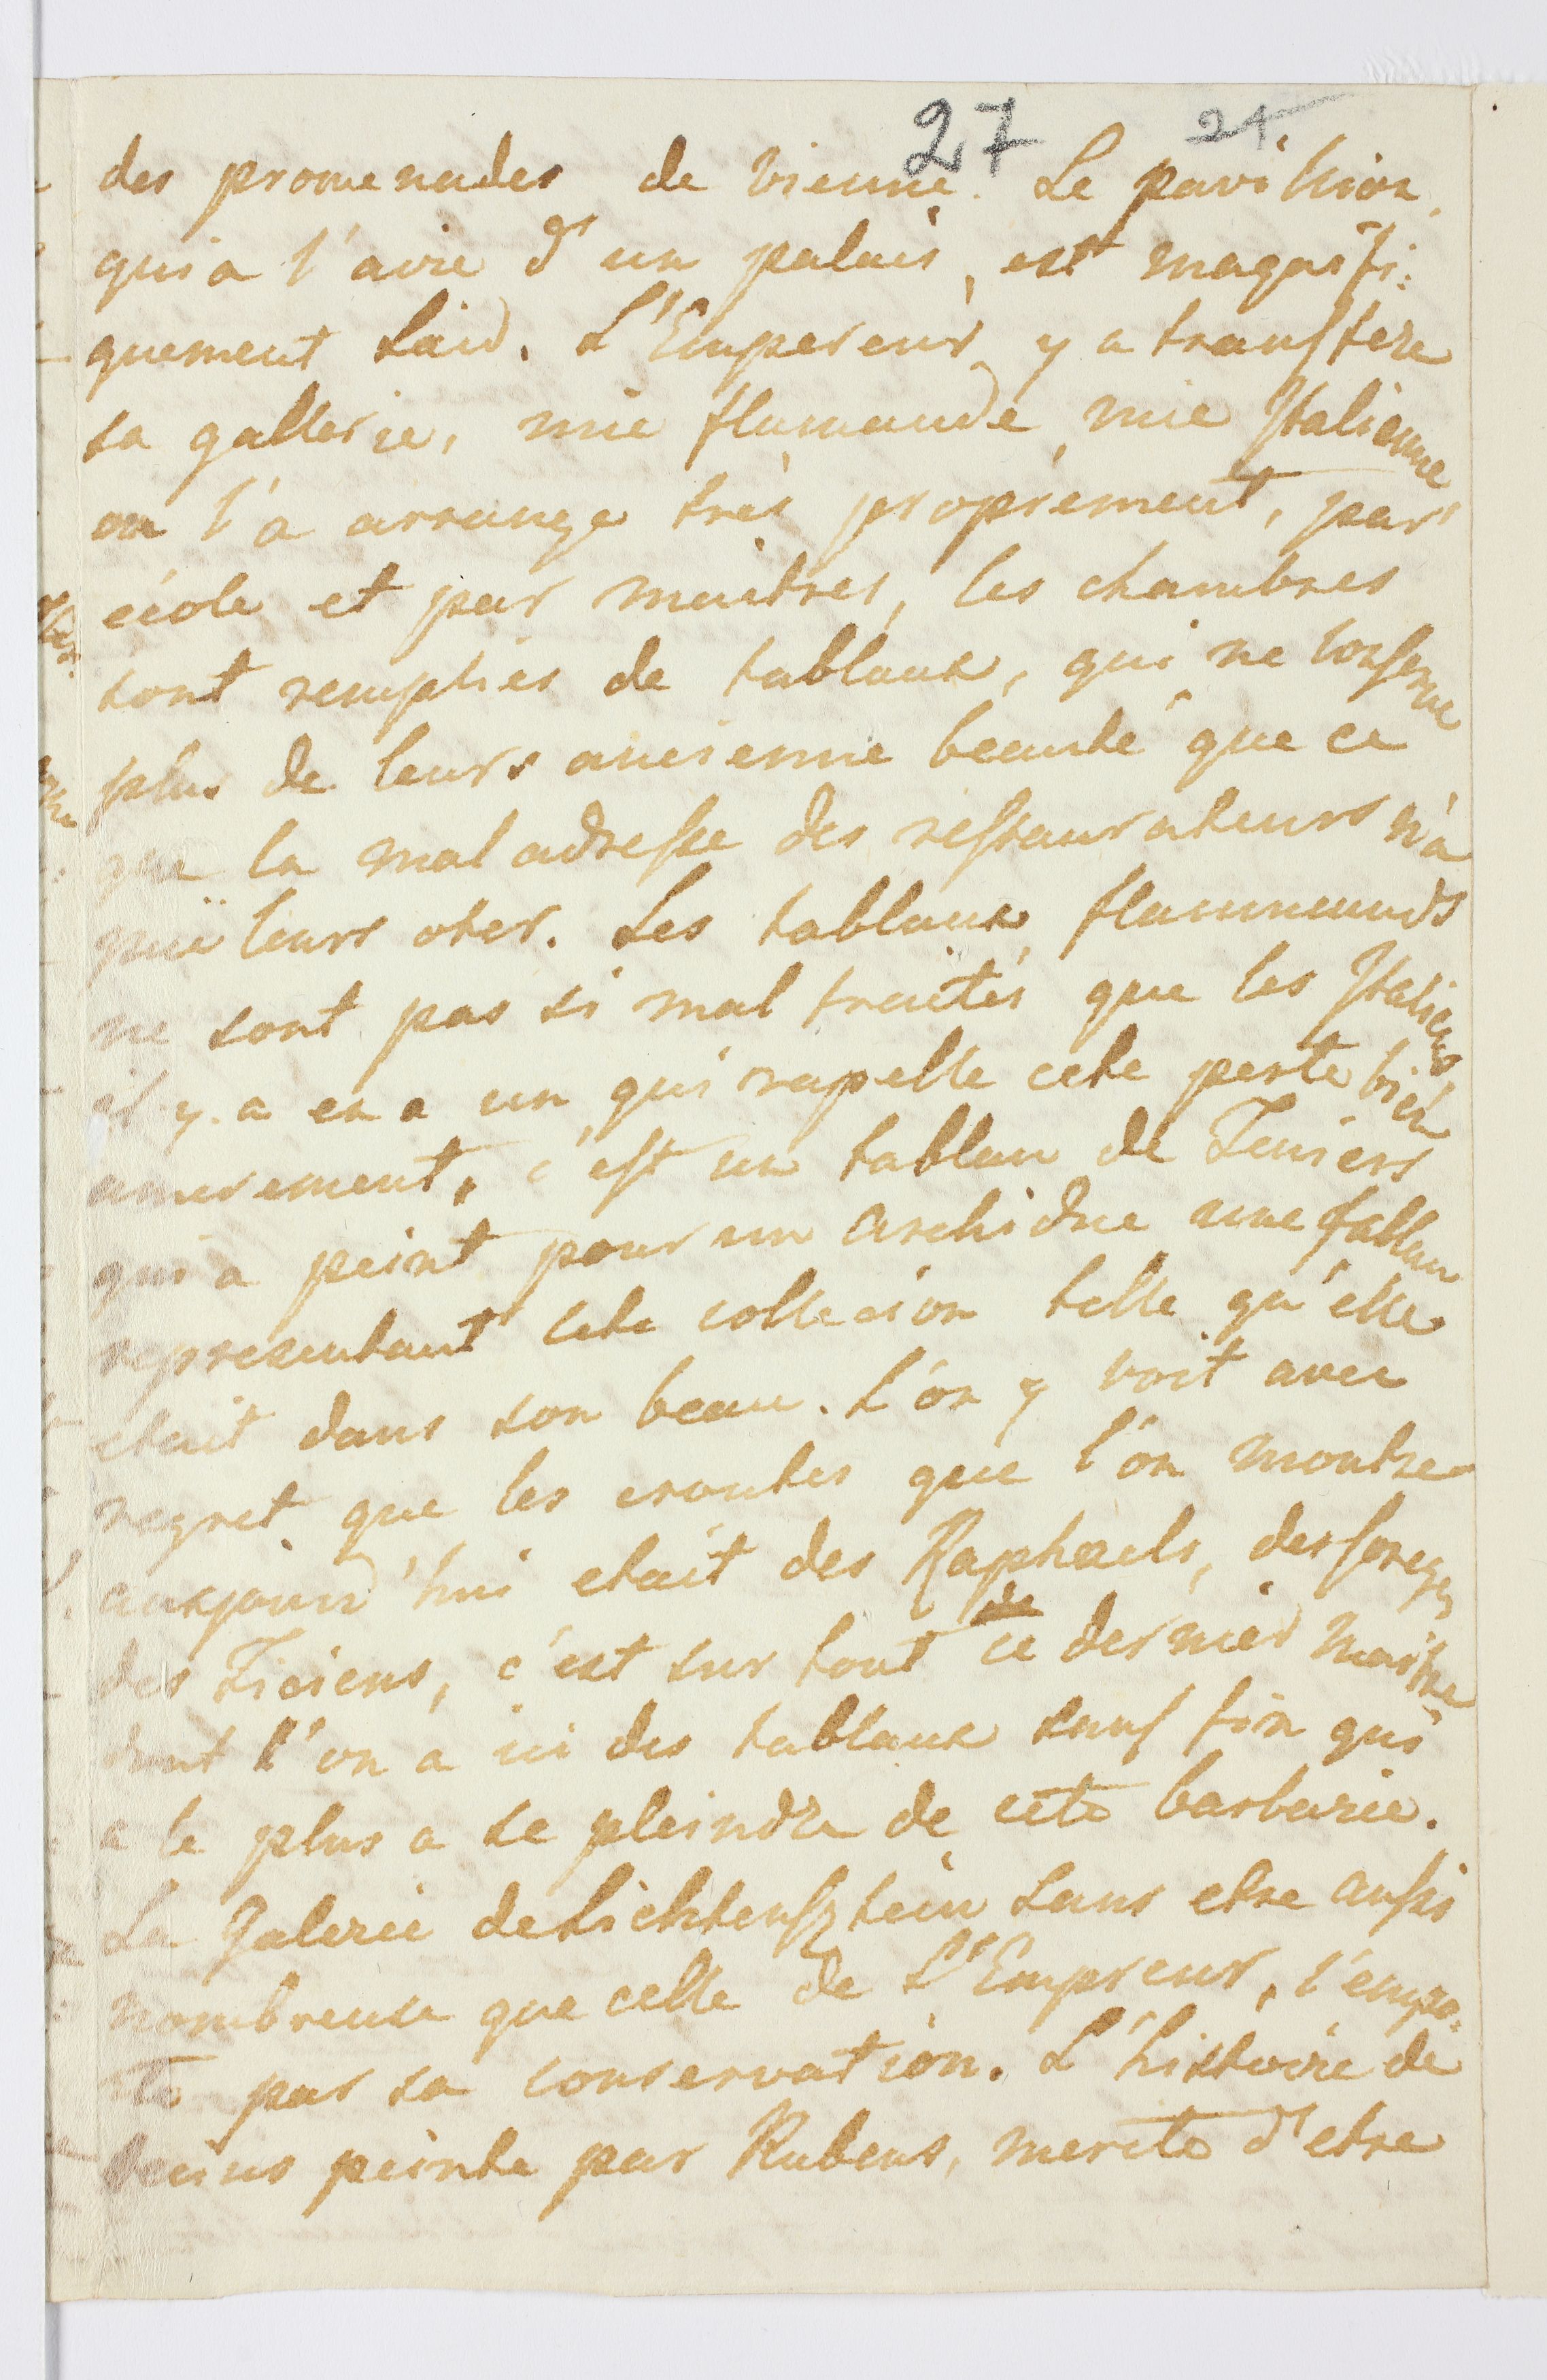 27 24
des promenades de vienne. Le pavillion,
qui a l'aire d'un palais, est magnifi:
quement laid. L'Empereur y a transfere
sa gallerie, mie flamande, mie Italienne
on l'a arrange très proprement, par
école et par maitres, les chambres
sont remplies de tableaux, qui ne conserve
plus de leurs ancienne beauté que ce
que la mal adresse des restaurateurs n'a
pu leurs oter. Les tableaux flammands
ne sont pas si mal traités que les Italiens,
il y. a en a un qui rapelle cete perte bien
amerement, c'est un tablau de Teniers
qui a peint pour un archiduc une tablau
representant cete collecion telle qu'elle
etait dans son beau. L'on y voit avec
regret que les croutes que l'on montre
aujourd'hui etait des Raphaels, des
des Ticiens, c'est sur tout ce dernier maitre
dont l'on a ici des tableaux sans fin qui
a le plus a se pleindre de cete barbarie.
La Galerie de Lichtensztein sans etre aussi
nombreuse que celle de L'Empreur, l'empo:
rte par sa conservation. L'histoire de
Decius peinte par Rubens, merite d'etre